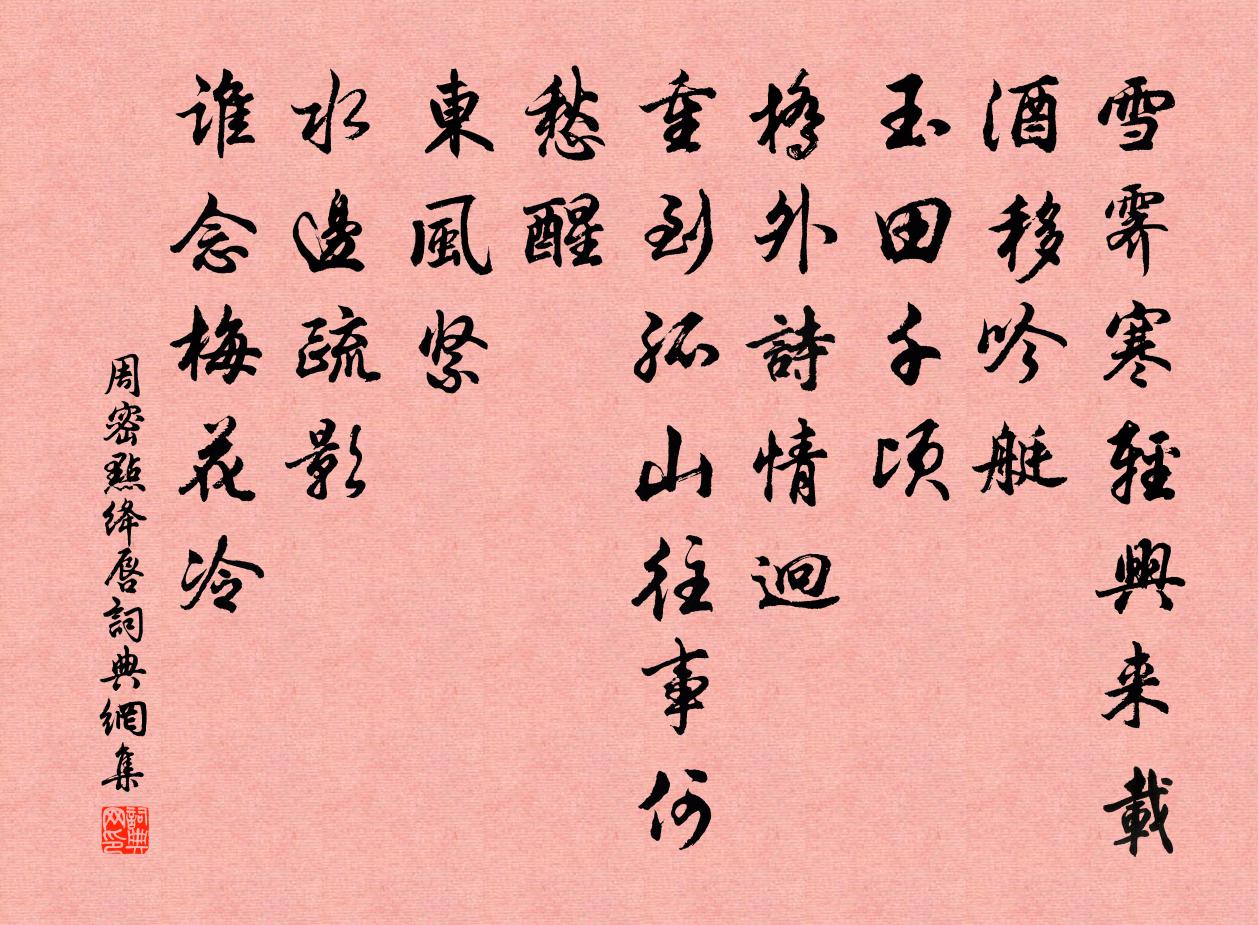 雪霽寒輕興来載
酒移吟艇
玉田千頃
橋外詩情迥
重到孤山往事何
愁醒
東風緊
水邊疏影
誰念梅花冷
周密點絳唇詞典網集
詞典网印